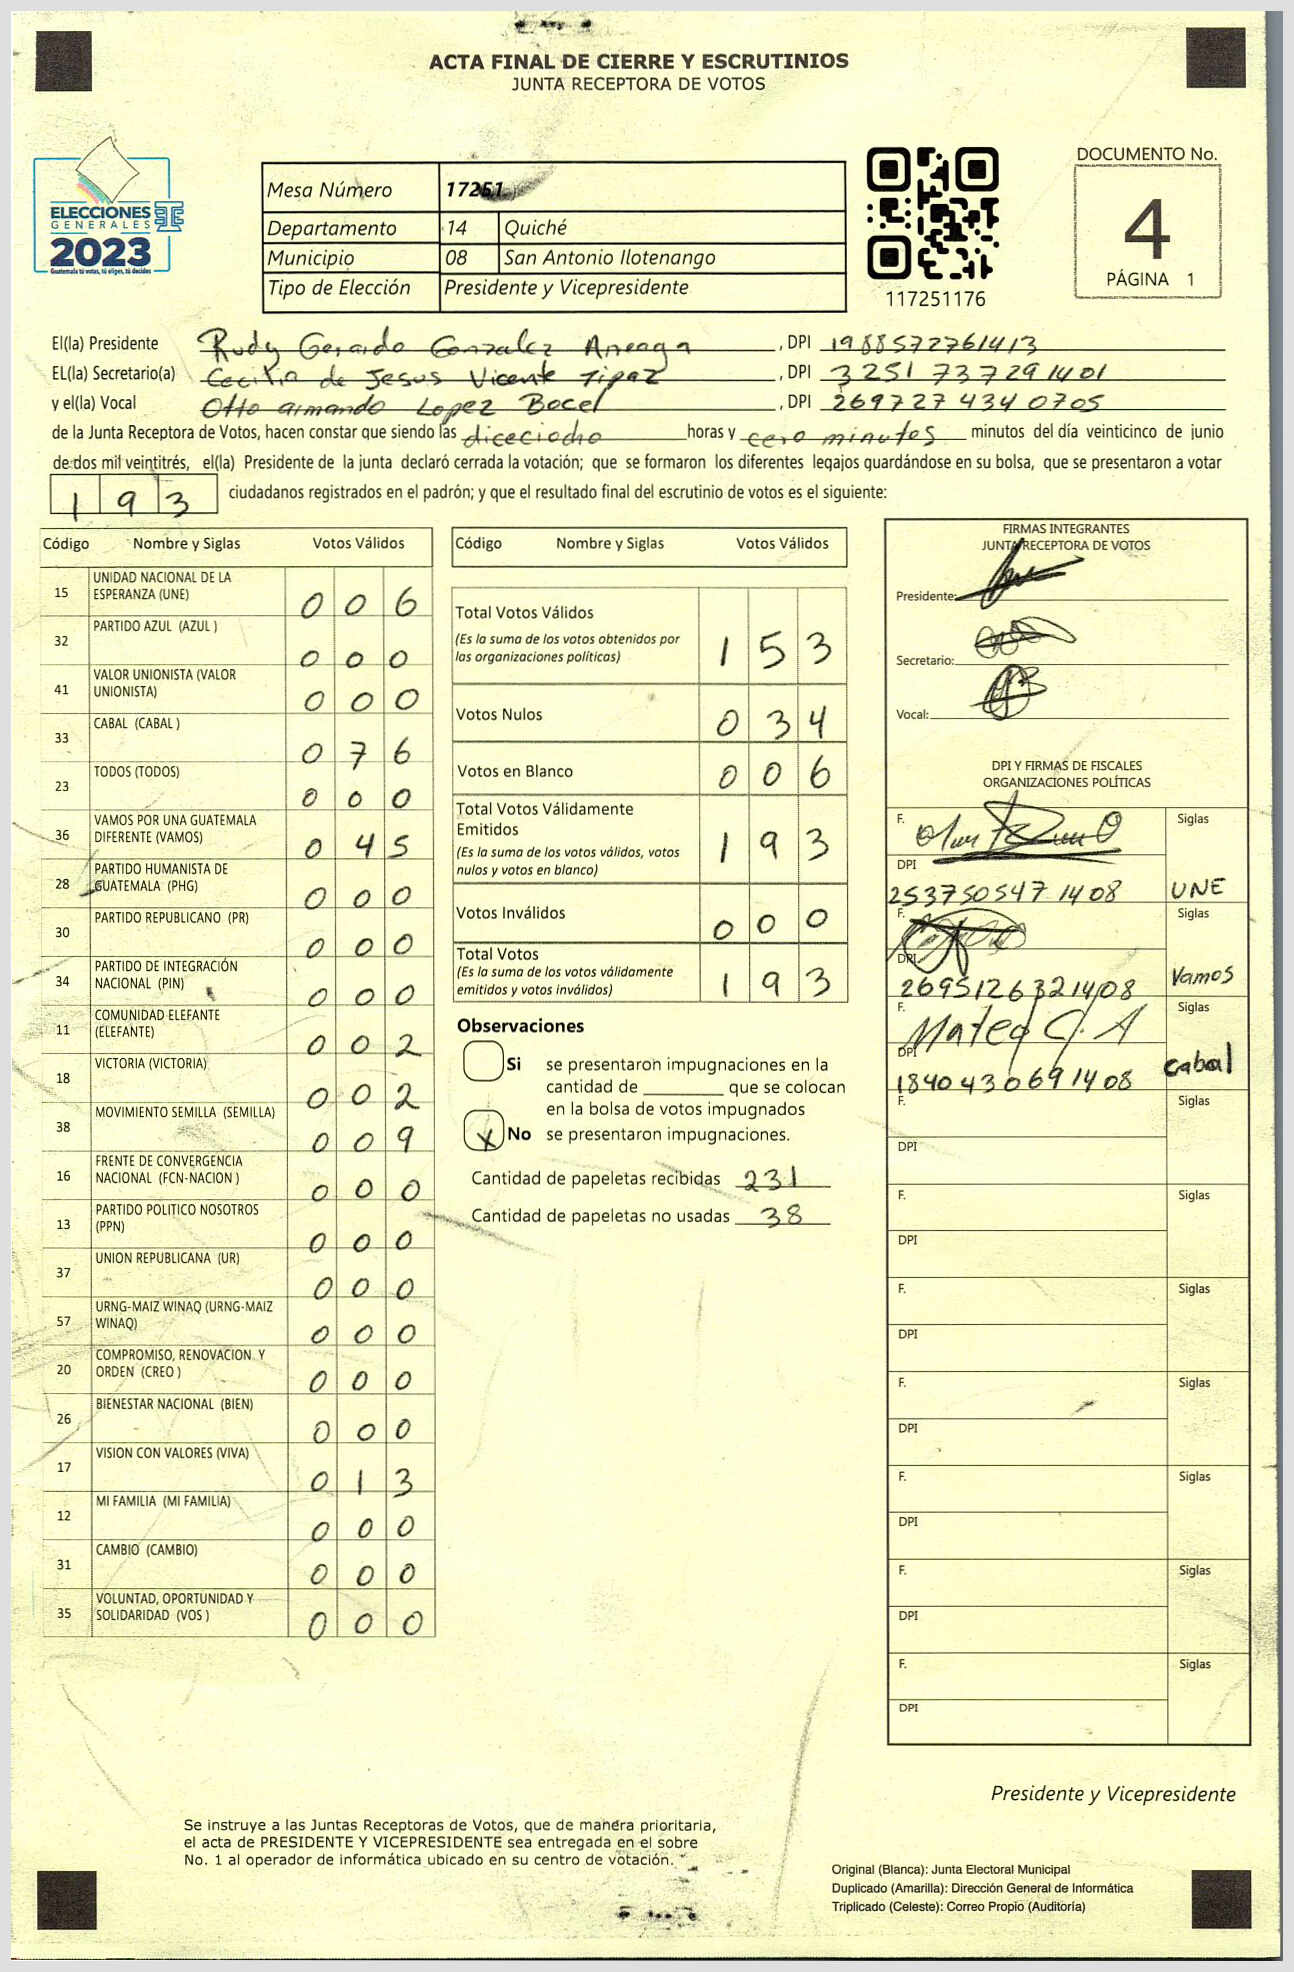 ACTA FINAL DE CIERRE Y ESCRUTINIOS
JUNTA RECEPTORA DE VOTOS
ELECCIONES
GENERALES
2023
Guatemala tú votas, tú eliges, tú decides
Mesa Número 17251
Departamento 14 Quiché
Municipio 08 San Antonio Ilotenango
Tipo de Elección Presidente y Vicepresidente
117251176
DOCUMENTO No.
4
PÁGINA 1
El(la) Presidente Rudy Gerardo Gonzalez Arreaga, DPI 1988572761413
EL(la) Secretario(a) Cecilia de Jesus Vicente Tipaz, DPI 3251 73729 1401
y el(la) Vocal Otto armando Lopez Bocel, DPI 269727 434 0705
de la Junta Receptora de Votos, hacen constar que siendo las diceciocho horas y cero minutos minutos del día veinticinco de junio
de dos mil veintitrés, el(la) Presidente de la junta declaró cerrada la votación; que se formaron los diferentes legajos guardándose en su bolsa, que se presentaron a votar
193 ciudadanos registrados en el padrón; y que el resultado final del escrutinio de votos es el siguiente:
Código Nombre y Siglas Votos Válidos
15 UNIDAD NACIONAL DE LA ESPERANZA (UNE) 006
32 PARTIDO AZUL (AZUL ) 000
41 VALOR UNIONISTA (VALOR UNIONISTA) 000
33 CABAL (CABAL ) 076
23 TODOS (TODOS) 000
36 VAMOS POR UNA GUATEMALA DIFERENTE (VAMOS) 045
28 PARTIDO HUMANISTA DE GUATEMALA (PHG) 000
30 PARTIDO REPUBLICANO (PR) 000
34 PARTIDO DE INTEGRACIÓN NACIONAL (PIN) 000
11 COMUNIDAD ELEFANTE (ELEFANTE) 002
18 VICTORIA (VICTORIA) 002
38 MOVIMIENTO SEMILLA (SEMILLA) 009
16 FRENTE DE CONVERGENCIA NACIONAL (FCN-NACION ) 000
13 PARTIDO POLITICO NOSOTROS (PPN) 000
37 UNION REPUBLICANA (UR) 000
57 URNG-MAIZ WINAQ (URNG-MAIZ WINAQ) 000
20 COMPROMISO, RENOVACION Y ORDEN (CREO ) 000
26 BIENESTAR NACIONAL (BIEN) 000
17 VISION CON VALORES (VIVA) 013
12 MI FAMILIA (MI FAMILIA) 000
31 CAMBIO (CAMBIO) 000
35 VOLUNTAD, OPORTUNIDAD Y SOLIDARIDAD (VOS ) 000
Código Nombre y Siglas Votos Válidos
Total Votos Válidos 153
(Es la suma de los votos obtenidos por
las organizaciones políticas)
Votos Nulos 034
Votos en Blanco 006
Total Votos Válidamente
Emitidos 193
(Es la suma de los votos válidos, votos
nulos y votos en blanco)
Votos Inválidos 000
Total Votos 193
(Es la suma de los votos válidamente
emitidos y votos inválidos)
Observaciones
Si se presentaron impugnaciones en la
cantidad de ________ que se colocan
en la bolsa de votos impugnados
X No se presentaron impugnaciones.
Cantidad de papeletas recibidas 231
Cantidad de papeletas no usadas 38
FIRMAS INTEGRANTES
JUNTA RECEPTORA DE VOTOS
Presidente:
Secretario:
Vocal:
DPI Y FIRMAS DE FISCALES
ORGANIZACIONES POLÍTICAS
F. Siglas
DPI
253750547 1408 UNE
F. Siglas
DPI
2695126321408 Vamos
F. Mateo C. A Siglas
DPI
1840430691408 cabal
F. Siglas
DPI
F. Siglas
DPI
F. Siglas
DPI
F. Siglas
DPI
F. Siglas
DPI
F. Siglas
DPI
F. Siglas
DPI
Presidente y Vicepresidente
Se instruye a las Juntas Receptoras de Votos, que de manera prioritaria,
el acta de PRESIDENTE Y VICEPRESIDENTE sea entregada en el sobre
No. 1 al operador de informática ubicado en su centro de votación.
Original (Blanca): Junta Electoral Municipal
Duplicado (Amarilla): Dirección General de Informática
Triplicado (Celeste): Correo Propio (Auditoría)